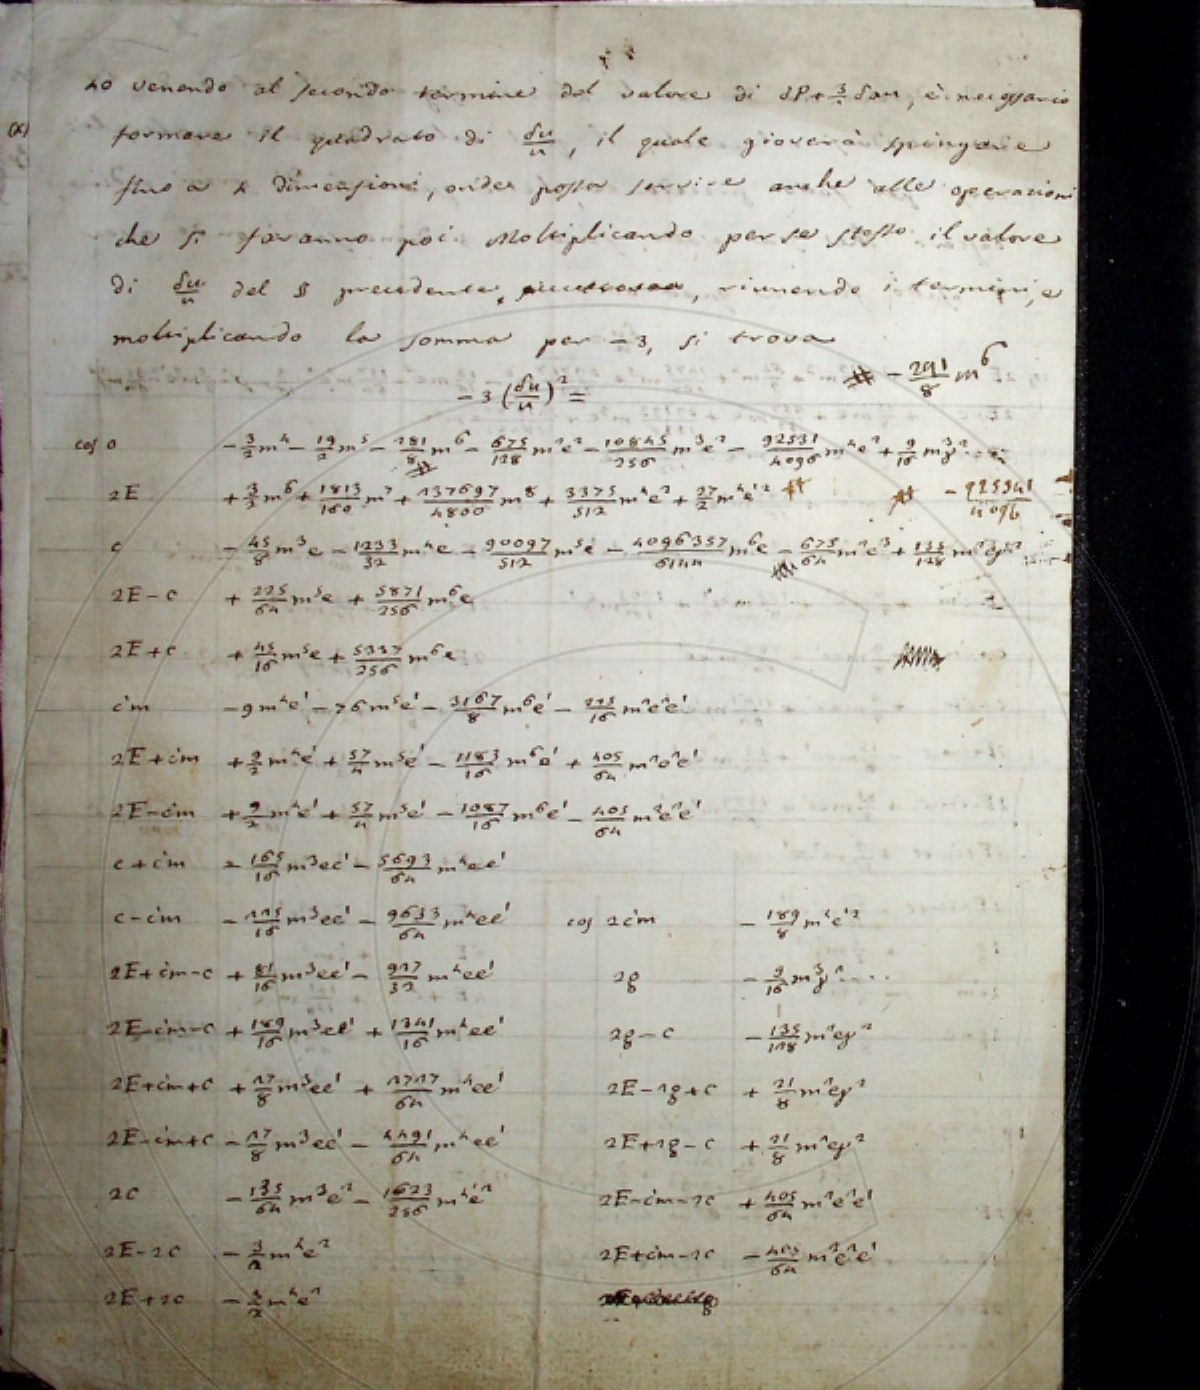 40 venendo al secondo termine del valore di δP + 3/2 δau, è necessario
formare il quadrato di δu/u, il quale gioverà spingere
fino a 4 dimensioni, onde possa servire anche alle operazioni
che si faranno poi. Moltiplicando per se stesso il valore
di δu/u del § precedente, riunendo i termini, e
moltiplicando la somma per −3, si trova
− 291/8 m⁶
−3 (δu/u)² =
cos 0 − 3/2 m⁴ − 19/2 m⁵ − 281/8 m⁶ − 675/128 m²e² − 10845/256 m³e² − 92531/4096 m⁴e² + 9/16 m³γ²
2E + 3/2 m⁶ + 1813/160 m⁷ + 137697/4800 m⁸ + 3375/512 m⁴e² + 27/2 m⁴e'² − 225341/4096
c − 45/8 m³e − 1233/32 m⁴e − 90097/512 m⁵e − 4096357/6144 m⁶e − 675/64 m²e³ + 135/128 m²eγ²
2E−c + 225/64 m⁵e + 5871/256 m⁶e
2E+c + 45/16 m⁵e + 5337/256 m⁶e
c'm − 9m⁴e' − 76m⁵e' − 3167/8 m⁶e' − 225/16 m²e²e'
2E+c'm + 9/2 m⁴e' + 57/4 m⁵e' − 1183/16 m⁶e' + 405/64 m²e²e'
2E−c'm + 9/2 m⁴e' + 57/4 m⁵e' − 1087/16 m⁶e' − 405/64 m²e²e'
c+c'm − 165/16 m³ee' − 5693/64 m⁴ee'
c−c'm − 225/16 m³ee' − 9633/64 m⁴ee' cos 2c'm − 189/8 m⁴e'²
2E+c'm−c + 81/16 m³ee' − 927/32 m⁴ee' 2g − 9/16 m³γ²...
2E−c'm−c + 189/16 m³ee' + 1341/16 m⁴ee' 2g−c − 135/128 m²eγ²
2E+c'm+c + 27/8 m³ee' + 2727/64 m⁴ee' 2E−2g+c + 21/8 m²eγ²
2E−c'm+c − 27/8 m³ee' − 4491/64 m⁴ee' 2E+2g−c + 21/8 m²eγ²
2c − 135/64 m³e² − 1623/256 m⁴e² 2E−c'm−2c + 405/64 m²e²e'
2E−2c − 3/2 m⁴e² 2E+c'm−2c − 405/64 m²e²e'
2E+2c − 3/2 m⁴e²